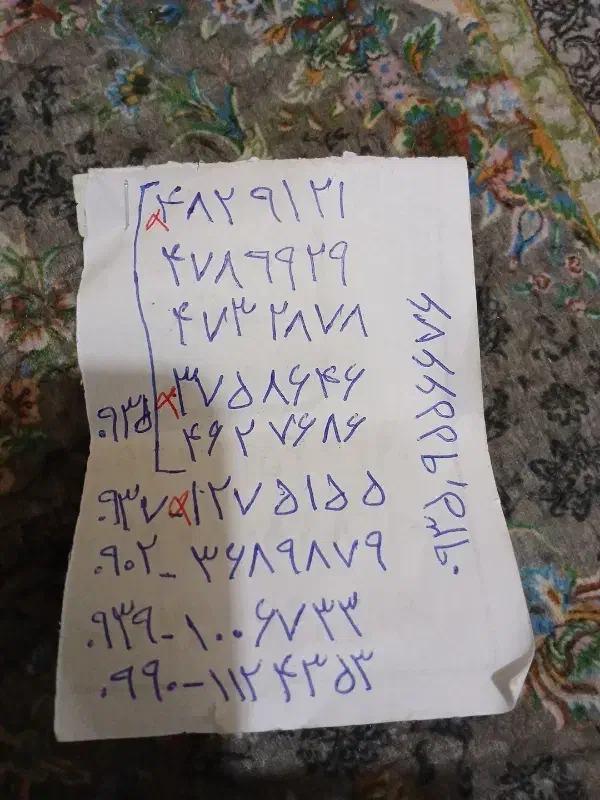 ۴۸۲۹۱۲۱
۴۷۸۹۹۲۹
۴۷۳۲۸۷۸
۳۷۵۸۶۴۶
۰۹۳۵
۴۶۲۷۶۸۶
۰۹۳۷-۱۲۷۵۱۵۵
۰۹۰۲-۳۶۸۹۸۷۹
۰۹۳۹-۱۰۰۶۷۳۳
۰۹۹۰-۱۱۲۴۳۵۳
۰۹۳۵۱۹۵۵۶۶۷۶